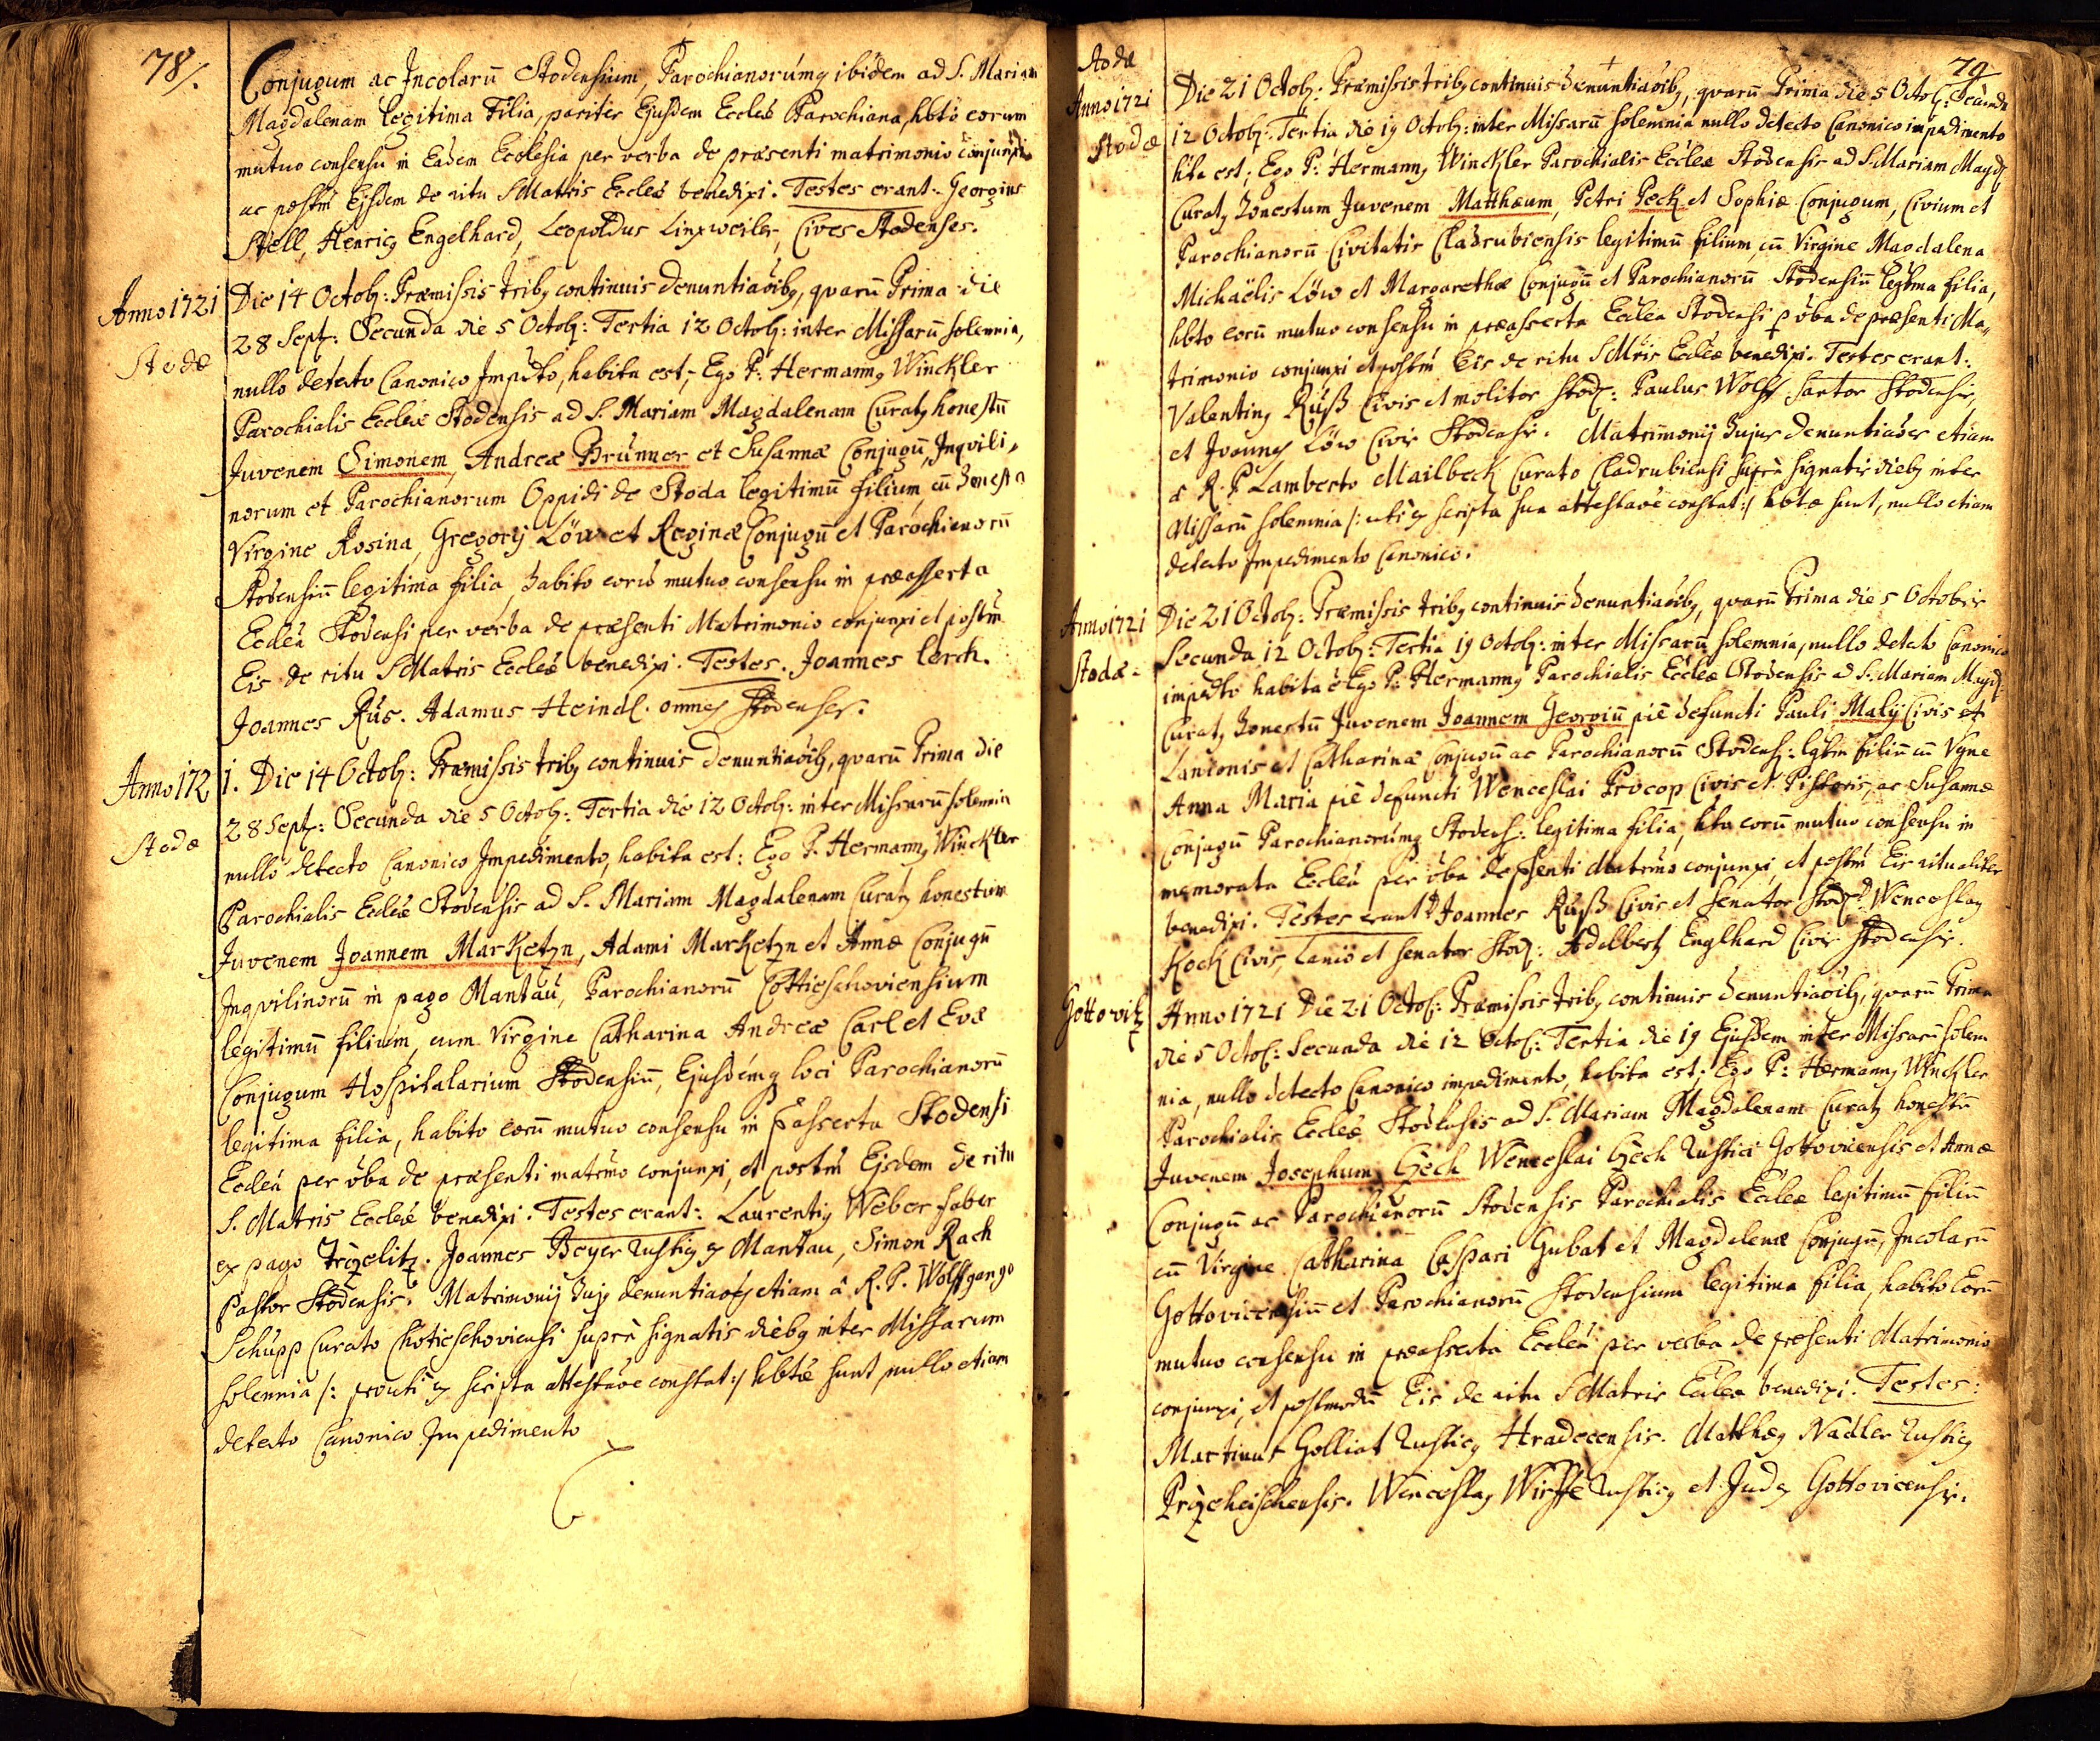 78/.
Conjugum ac Incolarū Stodensium, Parochianorúmq ibidem ad S. Mariam
Magdalenam legitima Filia, pariter Ejusdem Eccleæ Parochiana, hbto eorum
mutuo consensu in Eadem Ecclesia per verba de præsenti matrimonio conjunxi
ac postm̄ Ejsdem de ritu S Matris Eccleæ benedixi. Testes erant: Georgius
Stell, Henricq Engelhard, Leopoldus Linxweiler, Cives Stodenses.
Anno 1721
Stodæ
Die 14 Octob: Præmissis tribq continuis denuntiaōibq, qvarū Prima die
28 Sept: Secunda die 5 Octob: Tertia 12 Octob: inter Missarū solemnia,
nullo detecto Canonico Impdto, habita est; Ego P. Hermannq Winckler
Parochialis Eccleæ Stodensis ad S. Mariam Magdalenam Curatq honestū
Juvenem Simonem, Andreæ Brunner et Susannæ Conjugū, Inqvili-
norum et Parochianorum Oppidi de Stoda legitimū filium, cū honesta
Virgine Rosina, Gregorij Löw et Reginæ Conjugū et Parochianorū
Stodensiū legitima filia, habito eorū mutuo consensu in præasserta
Ecclea Stodensi per verba de præsenti Matrimonio conjunxi et postm̄
Eis de ritu S Matris Eccleæ benedixi. Testes. Joannes Lerch.
Joannes Rús. Adamus Heindl. omnes Stodenses.
Anno 172
Stodæ
1. Die 14 Octob: Præmissis tribq continuis denuntiaōibq, qvarū Prima die
28 Sept: Secunda die 5 Octob: Tertia die 12 Octob: inter Missarū solemnia
nullo detecto Canonico Impedimento, habita est: Ego P. Hermannq Winckler
Parochialis Eccleæ Stodensis ad S. Mariam Magdalenam Curatq honestum
Juvenem Joannem Marketzn, Adami Marketzn et Annæ Conjugū
Inqvilinorū in pago Mantau, Parochianorū Cottieschoviensium
legitimū filium, cum Virgine Catharina Andreæ Carl et Evæ
Conjugum Hospitalarium Stodensiū, Ejusdemq loci Parochianorū
legitima filia, habito eorū mutuo consensu in passerta Stodensi
Ecclea per vba de præsenti matrimo conjunxi, et postm̄ Ejsdem de ritu
S. Matris Eccleæ benedixi. Testes erant: Laurentiq Weber faber
ex pago Trzelitz. Joannes Beyer rusticq ex Mantau, Simon Rach
Pastor Stodensis. Matrimonij hujq denuntiaōes etiam à R. P. Wolffgango
Schupp Curato Chotieschoviensi suprà signatis diebq inter Missarum
solennia /: prouti ex scripta attestaōe constat:/ hbtæ sunt, nullo etiam
detecto Canonico Impedimento
Stoda
79
Anno 1721
Stodæ
Die 21 Octob: Præmissis tribq continuis denuntiaōibq, qvarū Prima die 5 Octob: Secunda
12 Octob: Tertia die 19 Octob: inter Missarū solemnia nullo detecto Canonico impedimento
hbta est; Ego P. Hermannq Winckler Parochialis Eccleæ Stodensis ad S. Mariam Magd:
Curatq honestum Juvenem Matthæum, Petri Peck et Sophiæ Conjugum, Civium et
Parochianorū Civitatis Cladrubiensis legitimū filium, cū Virgine Magdalena
Michaëlis Löw et Margarethæ Conjugū et Parochianorū Stodensiū legtma filia,
hbto eorū mutuo consensu in præasserta Ecclea Stodensi p vba de præsenti Ma-
trimonio conjunxi et postm̄ Eis de ritu S Mris Eccleæ benedixi. Testes erant:
Valentinq Ruß Civis et molitor Stod: Paulus Wolff Sartor Stodensis,
et Joannes Löw Civis Stodensis. Matrimonij hujus denuntiaōes etiam
à R. P. Lamberto Mailbeck Curato Cladrubiensi suprà signatis diebq inter
Missarū solemnia /: uti ex scripta sua attestaōe constat:/ hbtæ sunt, nullo etiam
detecto Impedimento Canonico.
Anno 1721
Stodæ.
Die 21 Octob: Præmissis tribq continuis denuntiaōibq, qvarū Prima die 5 Octobris
Secunda 12 Octob: Tertia 19 Octob: inter Missarū solemnia, nullo detecto Canonico
impdto habita ē Ego P. Hermannq Parochialis Eccleæ Stodensis ad S. Mariam Magd:
Curatq honestū Juvenem Joannem Georgiū piè defuncti Pauli Malij Civis et
Lanionis et Catharinæ Conjugū ac Parochianorū Stodens: lgtm filiū cū Vgne
Anna Maria piè defuncti Wenceslai Procop Civis et Pistoris, ac Susannæ
Conjugū Parochianorúmq Stodens: legitima filia, hbto eorū mutuo consensu in
memorata Ecclea per vba de psenti Matrimo conjunxi et postm̄ Eis ritualiter
benedixi. Testes erant D Joannes Ruß Civis et Senator Stod: D. Wenceslaq
Kock Civis, Lanio et Senator Stod: Adelbertq Englhard Civis Stodensis.
Gottovitz
Anno 1721 Die 21 Octob: Præmissis tribq continuis denuntiaōibq, qvarū Prima
die 5 Octob: Secunda die 12 Octob: Tertia die 19 Ejusdem inter Missarū solem
nia, nullo detecto Canonico impedimento, habita est; Ego P. Hermannq Winckler
Parochialis Eccleæ Stodensis ad S. Mariam Magdalenam Curatq honestū
Juvenem Josephum Czech Wenceslai Czech rustici Gottovicensis et Annæ
Conjugū ac Parochianorū Stodensis Parochialis Eccleæ legitimū filiū
cū Virgine Catharina Caspari Gubat et Magdalenæ Conjugū, Incolarū
Gottovicensiū et Parochianorū Stodensium legitima filia, habito Eorū
mutuo consensu in præasserta Ecclea per verba de præsenti Matrimonio
conjunxi, et postmodū Eis de ritu S Matris Eccleæ benedixi. Testes:
Martinus Golliat rusticq Hradecensis. Matthæq Nadler rusticq
Przeheischensis. Wenceslaq Wirsse rusticq et Judex Gottovicensis.